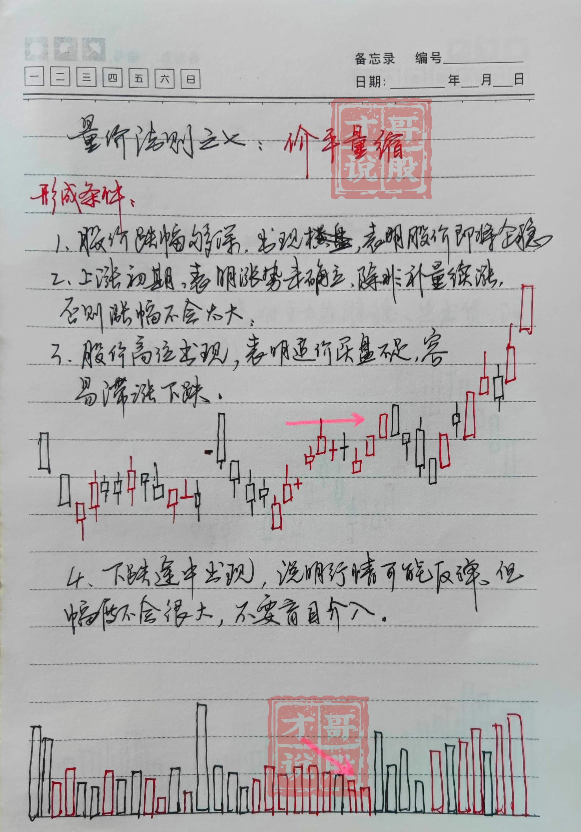 备忘录 编号
一 二 三 四 五 六 日
日期: 年 月 日
量价法则之七：价平量缩
才哥说股
形成条件：
1、股价跌幅够深，出现横盘，表明股价即将企稳
2、上涨初期，表明涨势未确立，除非补量续涨，
否则涨幅不会太大。
3、股价高位出现，表明追价买盘不足，容
易滞涨下跌。
4、下跌途中出现，说明行情可能反弹、但
幅度不会很大，不要盲目介入。
才哥说股